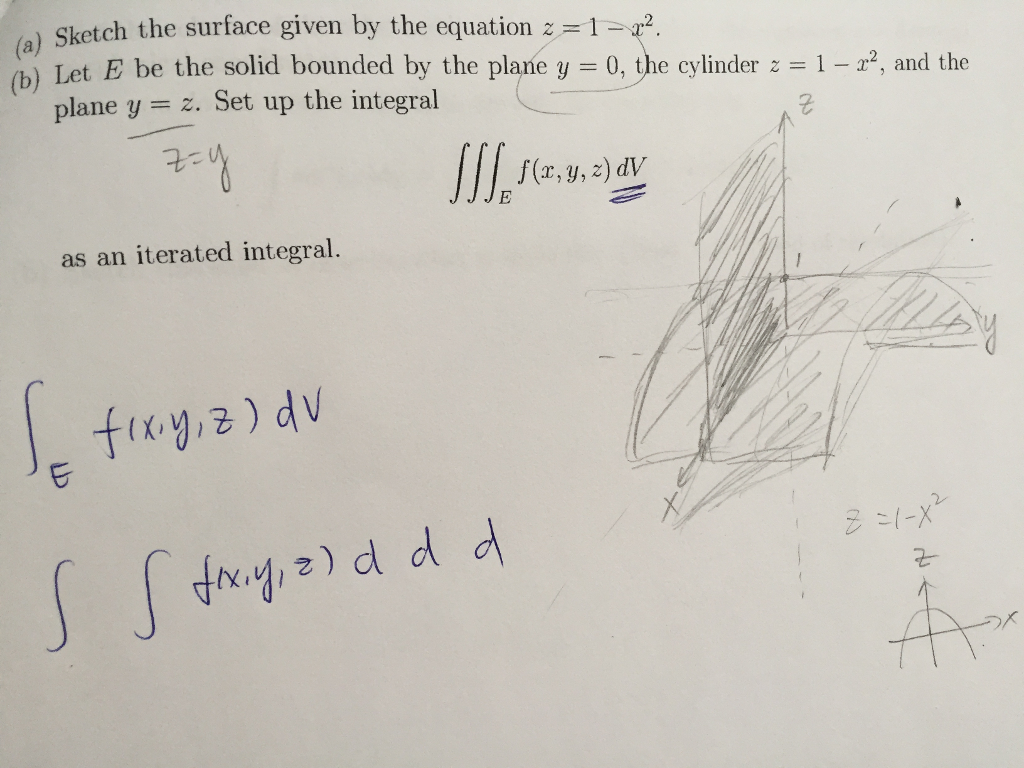 (a) Sketch the surface given by the equation z = 1 − x².
(b) Let E be the solid bounded by the plane y = 0, the cylinder z = 1 − x², and the
plane y = z. Set up the integral
z
z=y
∭_E f(x, y, z) dV
as an iterated integral.
1
y
∫_E f(x,y,z) dV
x
z = 1-x²
z
∫ ∫ f(x,y,z) d d d
x